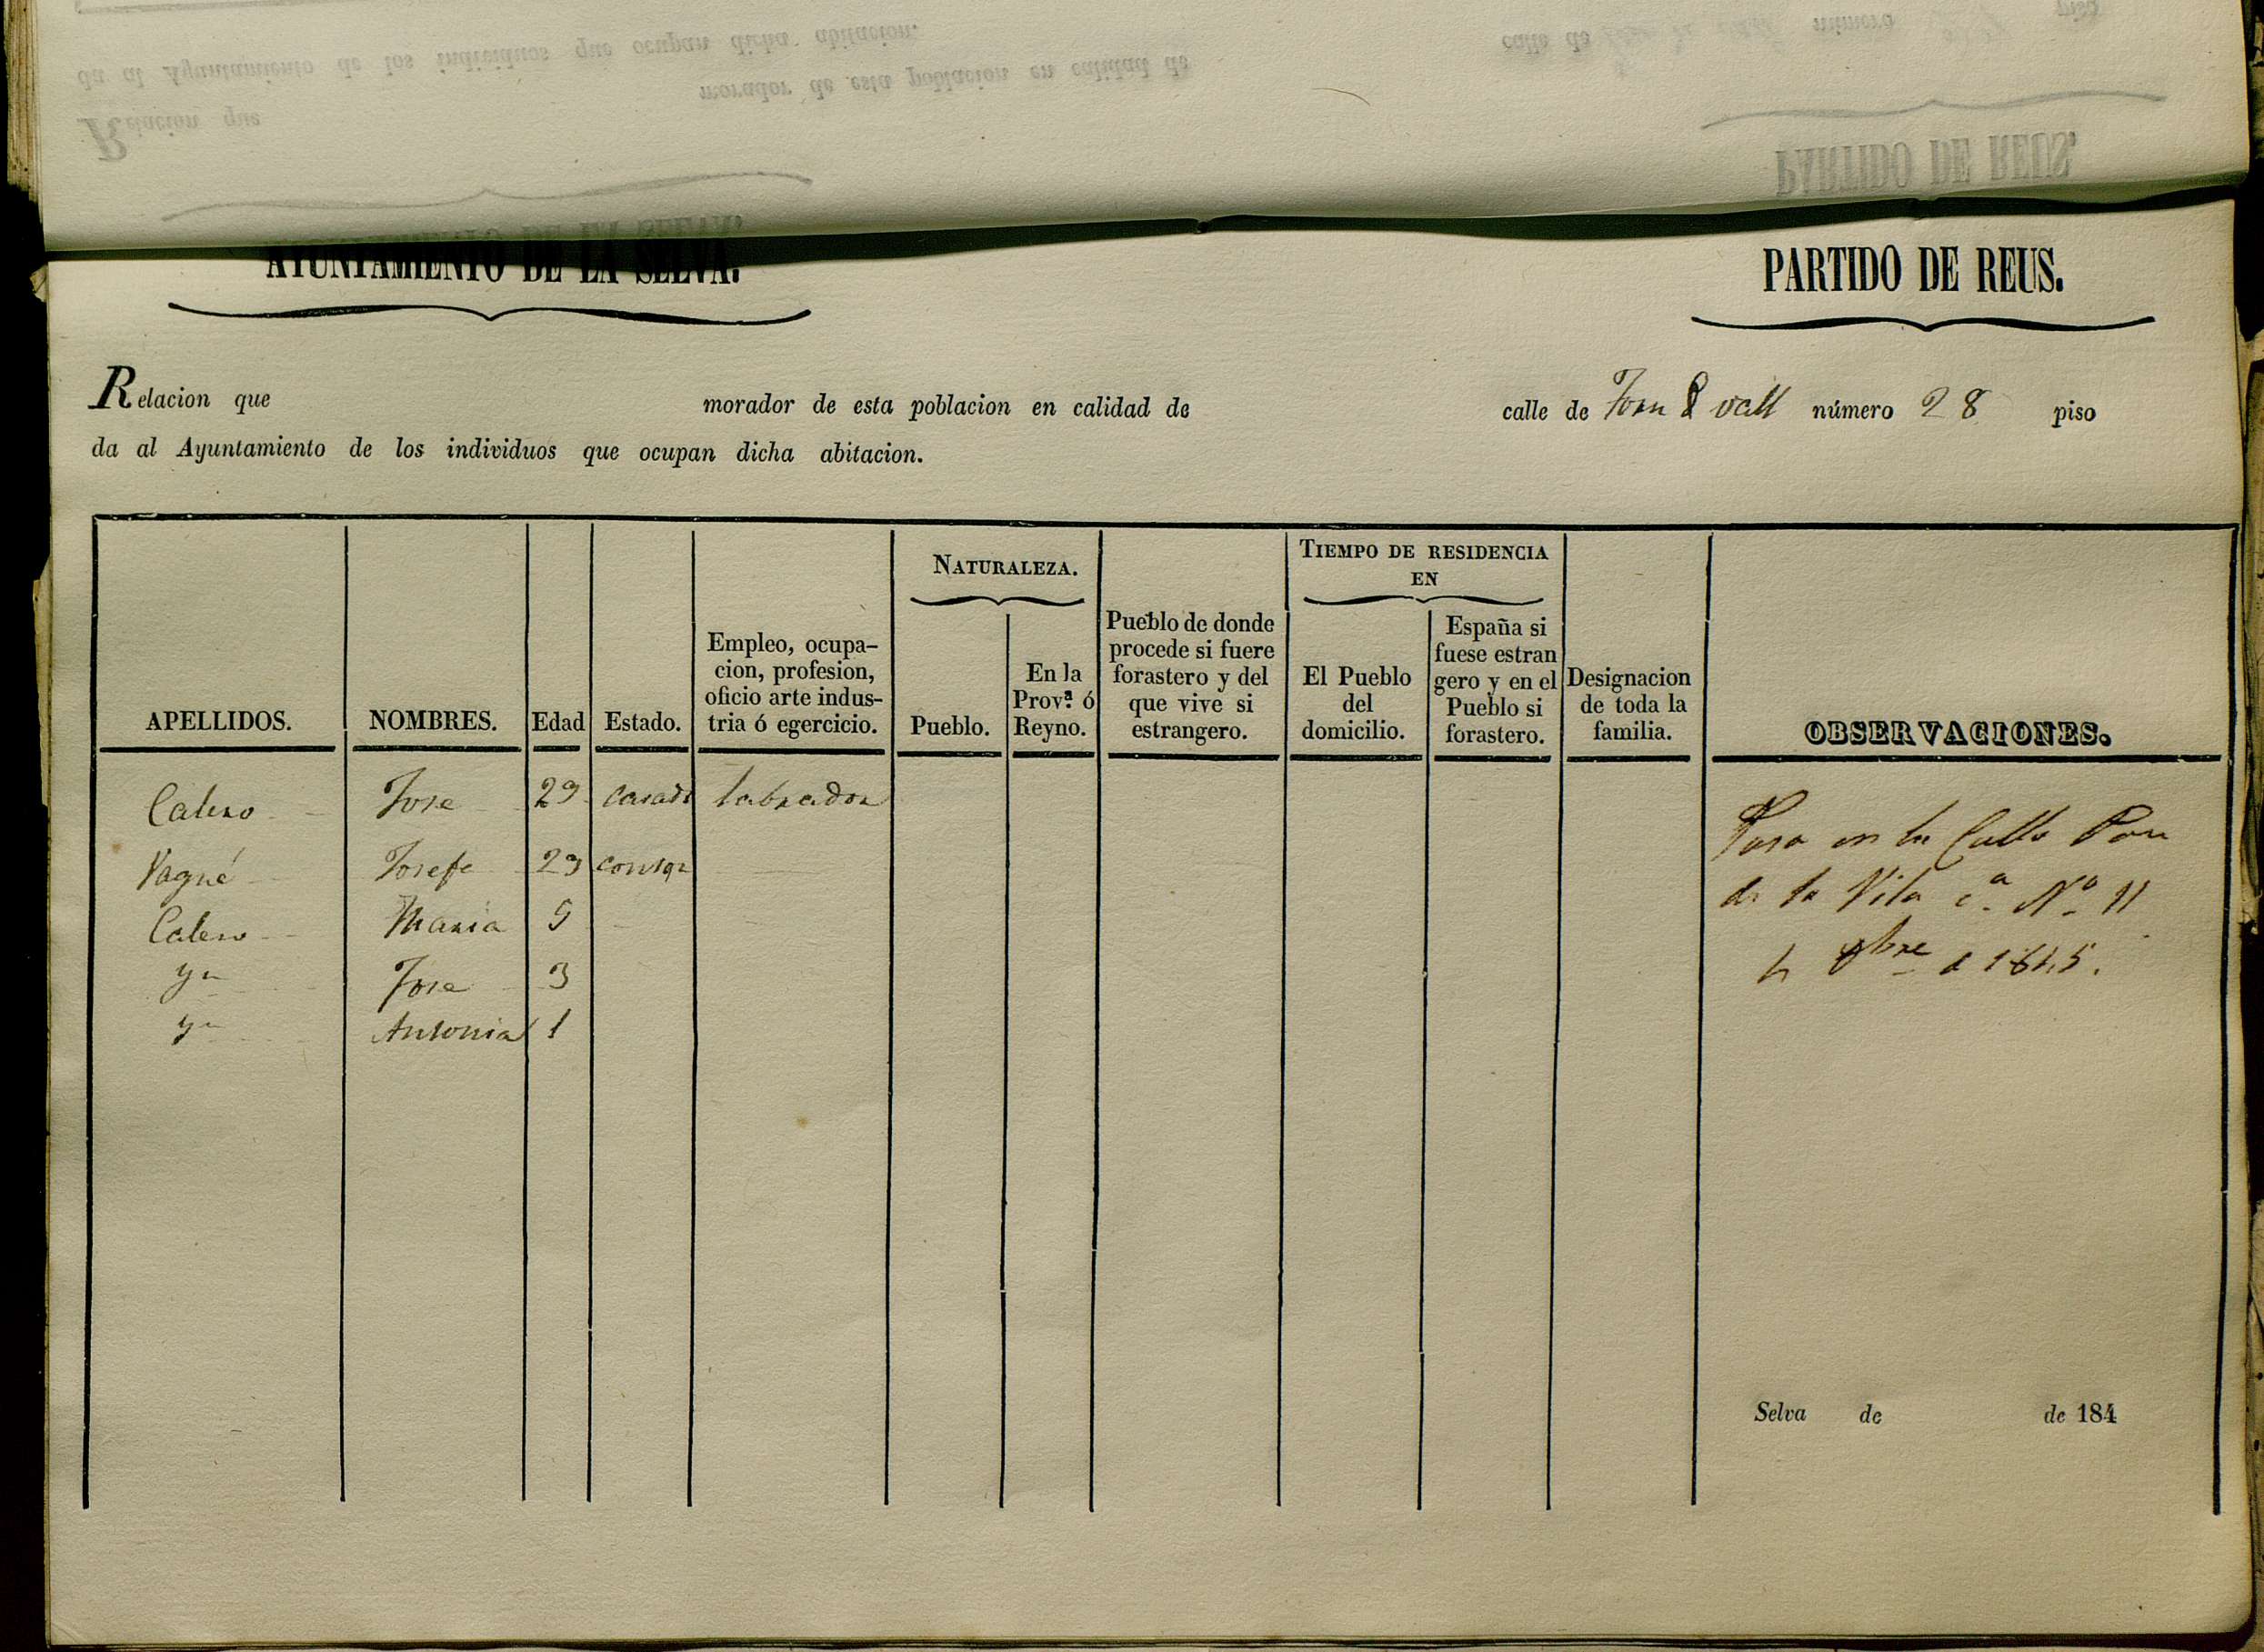 AYUNTAMIENTO DE LA SELVA.
PARTIDO DE REUS.
Relacion que morador de esta poblacion en calidad de calle de Forn d vall número 28 piso
da al Ayuntamiento de los individuos que ocupan dicha abitacion.
APELLIDOS.
NOMBRES.
Edad
Estado.
Empleo, ocupa-
cion, profesion,
oficio arte indus-
tria ó egercicio.
NATURALEZA.
Pueblo.
En la
Prov.ª ó
Reyno.
Pueblo de donde
procede si fuere
forastero y del
que vive si
estrangero.
TIEMPO DE RESIDENCIA
EN
El Pueblo
del
domicilio.
España si
fuese estran
gero y en el
Pueblo si
forastero.
Designacion
de toda la
familia.
OBSERVACIONES.
Calero Jose 29 casado labrador
Vagué Josefa 29 consor
Calero Maria 5
yn Jose 3
yn Antonia 1
Pasa en la Calle Forn
de la Vila c.ª Nº 11
8bre d 1845.
Selva de de 184